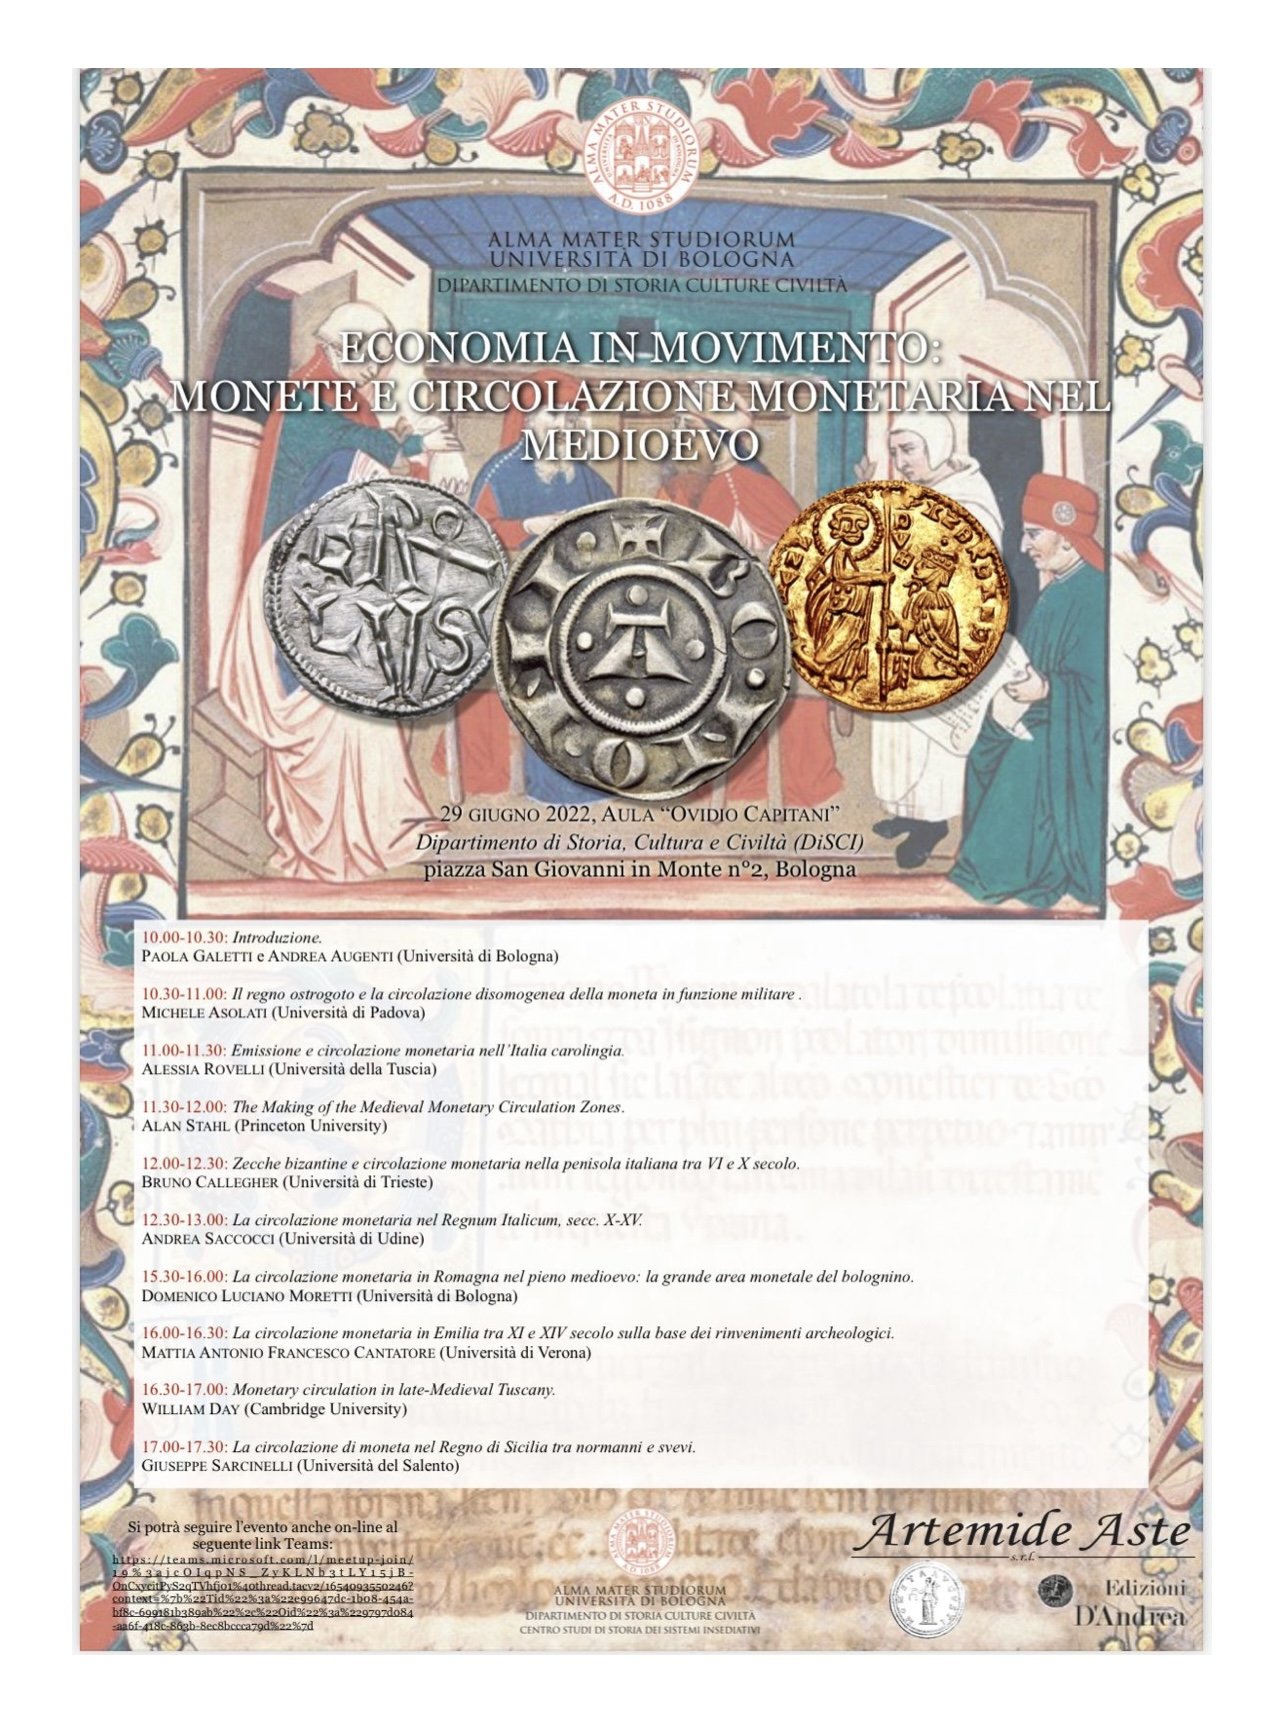 ALMA MATER STUDIORUM
A.D. 1088
ALMA MATER STUDIORUM
UNIVERSITÀ DI BOLOGNA
DIPARTIMENTO DI STORIA CULTURE CIVILTÀ
ECONOMIA IN MOVIMENTO:
MONETE E CIRCOLAZIONE MONETARIA NEL
MEDIOEVO
29 GIUGNO 2022, AULA “OVIDIO CAPITANI”
Dipartimento di Storia, Cultura e Civiltà (DiSCI)
piazza San Giovanni in Monte n°2, Bologna
10.00-10.30: Introduzione.
PAOLA GALETTI e ANDREA AUGENTI (Università di Bologna)
10.30-11.00: Il regno ostrogoto e la circolazione disomogenea della moneta in funzione militare .
MICHELE ASOLATI (Università di Padova)
11.00-11.30: Emissione e circolazione monetaria nell’Italia carolingia.
ALESSIA ROVELLI (Università della Tuscia)
11.30-12.00: The Making of the Medieval Monetary Circulation Zones.
ALAN STAHL (Princeton University)
12.00-12.30: Zecche bizantine e circolazione monetaria nella penisola italiana tra VI e X secolo.
BRUNO CALLEGHER (Università di Trieste)
12.30-13.00: La circolazione monetaria nel Regnum Italicum, secc. X-XV.
ANDREA SACCOCCI (Università di Udine)
15.30-16.00: La circolazione monetaria in Romagna nel pieno medioevo: la grande area monetale del bolognino.
DOMENICO LUCIANO MORETTI (Università di Bologna)
16.00-16.30: La circolazione monetaria in Emilia tra XI e XIV secolo sulla base dei rinvenimenti archeologici.
MATTIA ANTONIO FRANCESCO CANTATORE (Università di Verona)
16.30-17.00: Monetary circulation in late-Medieval Tuscany.
WILLIAM DAY (Cambridge University)
17.00-17.30: La circolazione di moneta nel Regno di Sicilia tra normanni e svevi.
GIUSEPPE SARCINELLI (Università del Salento)
Si potrà seguire l’evento anche on-line al
seguente link Teams:
https://teams.microsoft.com/l/meetup-join/
context=%7b%22Tid%22%3a%22e99647dc-1b08-454a-
bf8c-699181b389ab%22%2c%22Oid%22%3a%229797d084
-aa6f-418c-863b-8ec8bccca79d%22%7d
ALMA MATER STUDIORUM
UNIVERSITÀ DI BOLOGNA
DIPARTIMENTO DI STORIA CULTURE CIVILTÀ
CENTRO STUDI DI STORIA DEI SISTEMI INSEDIATIVI
Artemide Aste
s.r.l.
Edizioni
D'Andrea